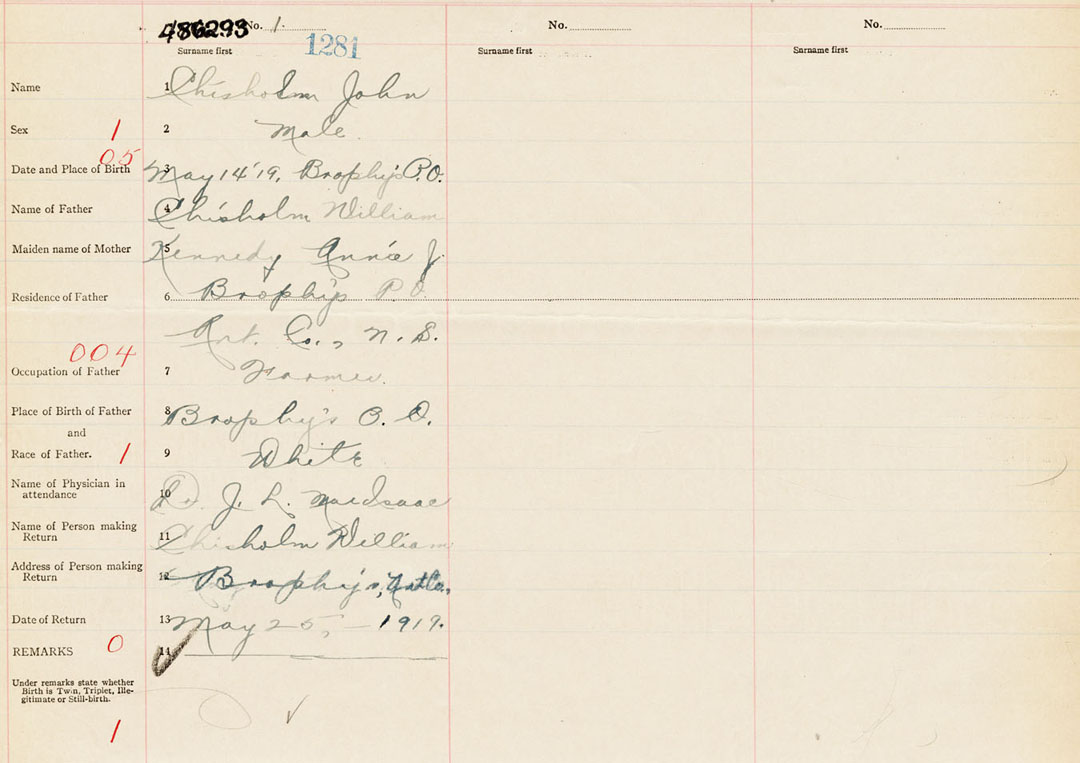 486293 No. 1 No. No.
1281
Surname first Surname first Surname first
Name 1 Chisholm John
Sex 1 2 Male
05
Date and Place of Birth 3 May 14 '19. Brophy's P.O.
Name of Father 4 Chisholm William
Maiden name of Mother 5 Kennedy Annie J.
Residence of Father 6 Brophy's P.O.
Ant. Co., N.S.
004
Occupation of Father 7 Farmer.
Place of Birth of Father 8 Brophy's P.O.
and
Race of Father. 1 9 White
Name of Physician in
attendance 10 Dr. J. L. MacIsaac
Name of Person making
Return 11 Chisholm William
Address of Person making
Return 12 Brophy's,
Date of Return 13 May 25, - 1919.
REMARKS 0 14
Under remarks state whether
Birth is Twin, Triplet, Ille-
gitimate or Still-birth.
1